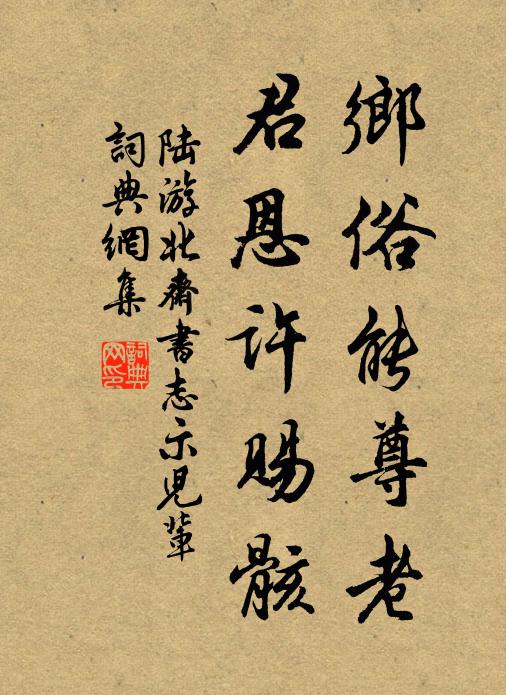 鄉俗能尊老
君恩許賜骸
陸游北齋書志示兒輩
詞典網集
詞典網印